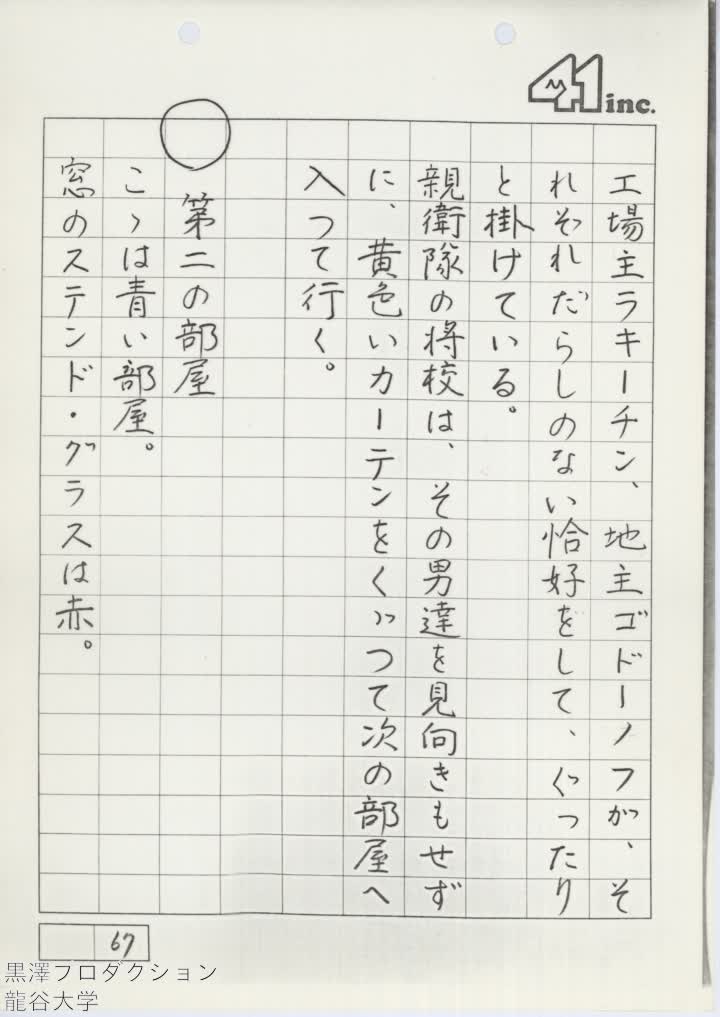 41 inc.
工場主ラキーチン、地主ゴドーノフが、そ
れそれだらしのない恰好をして、ぐったり
と掛けている。
親衛隊の将校は、その男達を見向きもせず
に、黄色いカーテンをくゞつて次の部屋へ
入つて行く。
○ 第二の部屋
こゝは青い部屋。
窓のステンド・グラスは赤。
67
黒澤プロダクション
龍谷大学